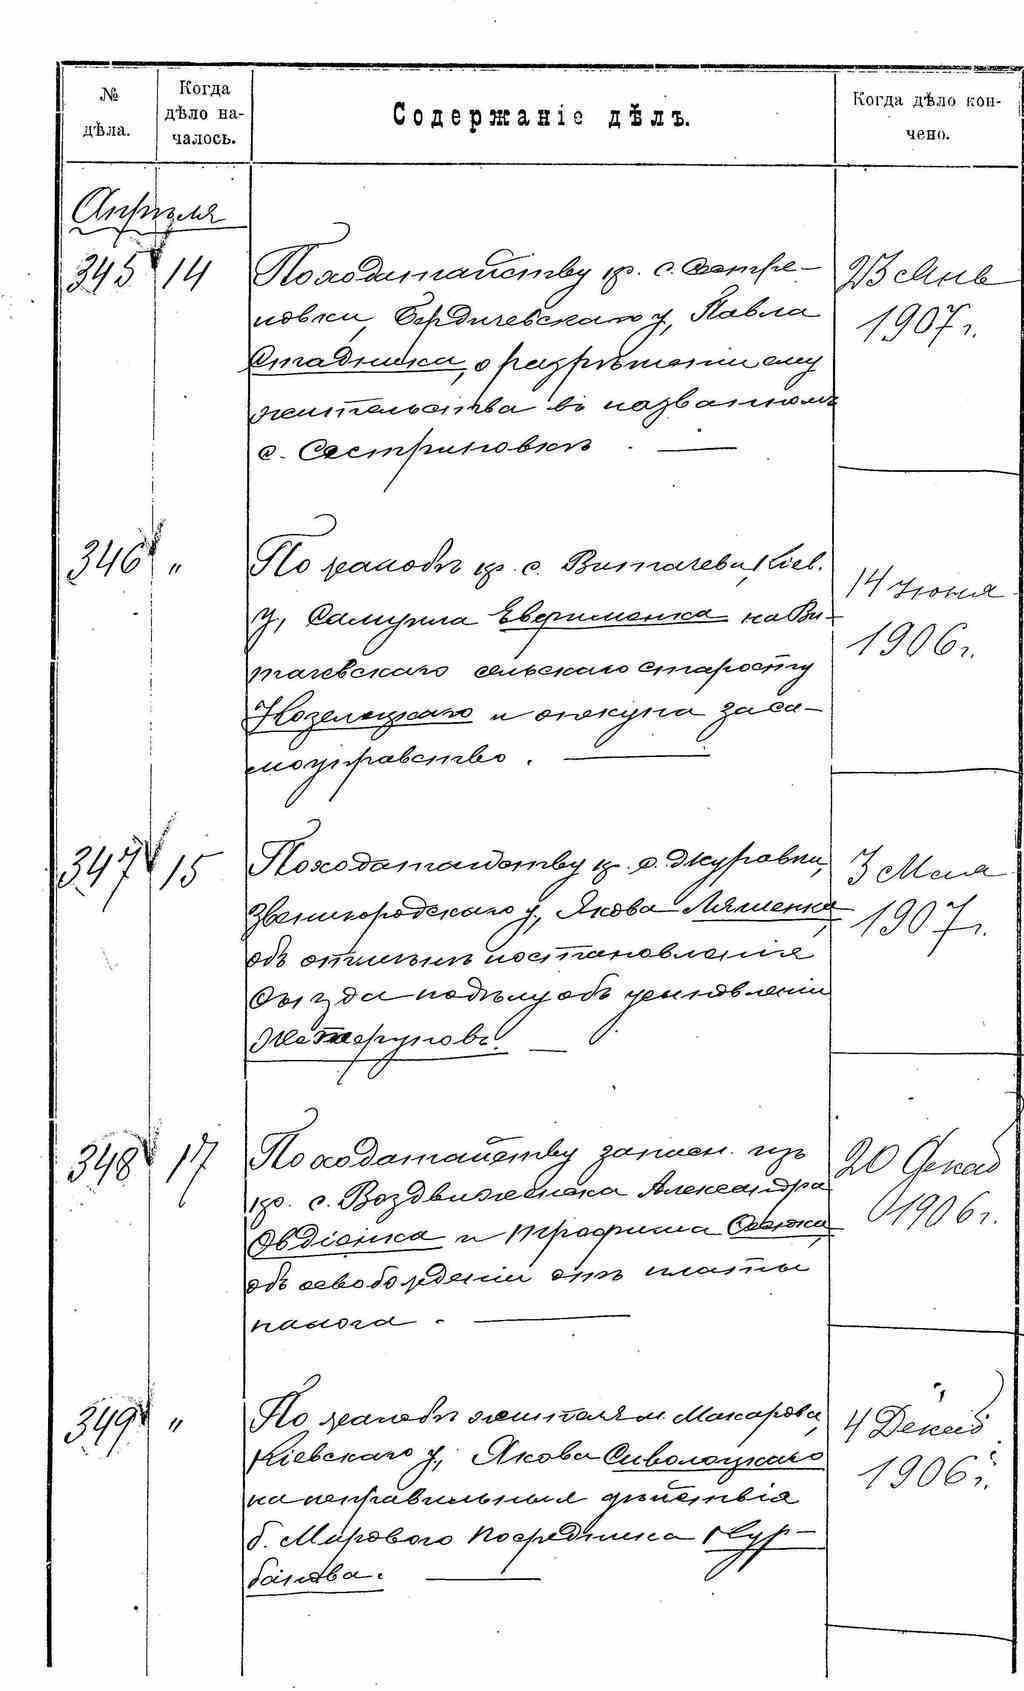 № дѣла.
Когда дѣло началось.
Содержаніе дѣлъ.
Когда дѣло кончено.
Апрѣля
345 14 По ходатайству кр. с. Сестре-
новки, Бердичевскаго у., Павла
Стадника, о разрѣшеніи ему
жительства въ названномъ
с. Сестриновкѣ.
23 Янв
1907 г.
346 " По жалобѣ кр. с. Витачева, Кіев.
у., Самуила Ефрименка на Ви-
тачевскаго сельскаго старосту
Козелецкаго и опекуна за са-
моуправство.
14 Июня
1906 г.
347 15 По ходатайству кр. с. Журавки,
Звенигородскаго у., Якова Ляшенка,
объ отмѣнѣ постановленія
Съѣзда по дѣлу объ усыновленіи

3 Мая
1907 г.
348 17 По ходатайству запасн. изъ
кр. с. Воздвиженска Александра
Овдіенка и Трофима
объ освобожденіи отъ платы
налога.
20 Декаб
1906 г.
349 " По жалобѣ жителя м. Макарова,
Кіевскаго у., Якова Сиволоцкаго
на неправильныя дѣйствія
б. Мирового Посредника Кур-
банова.
4 Декаб
1906 г.